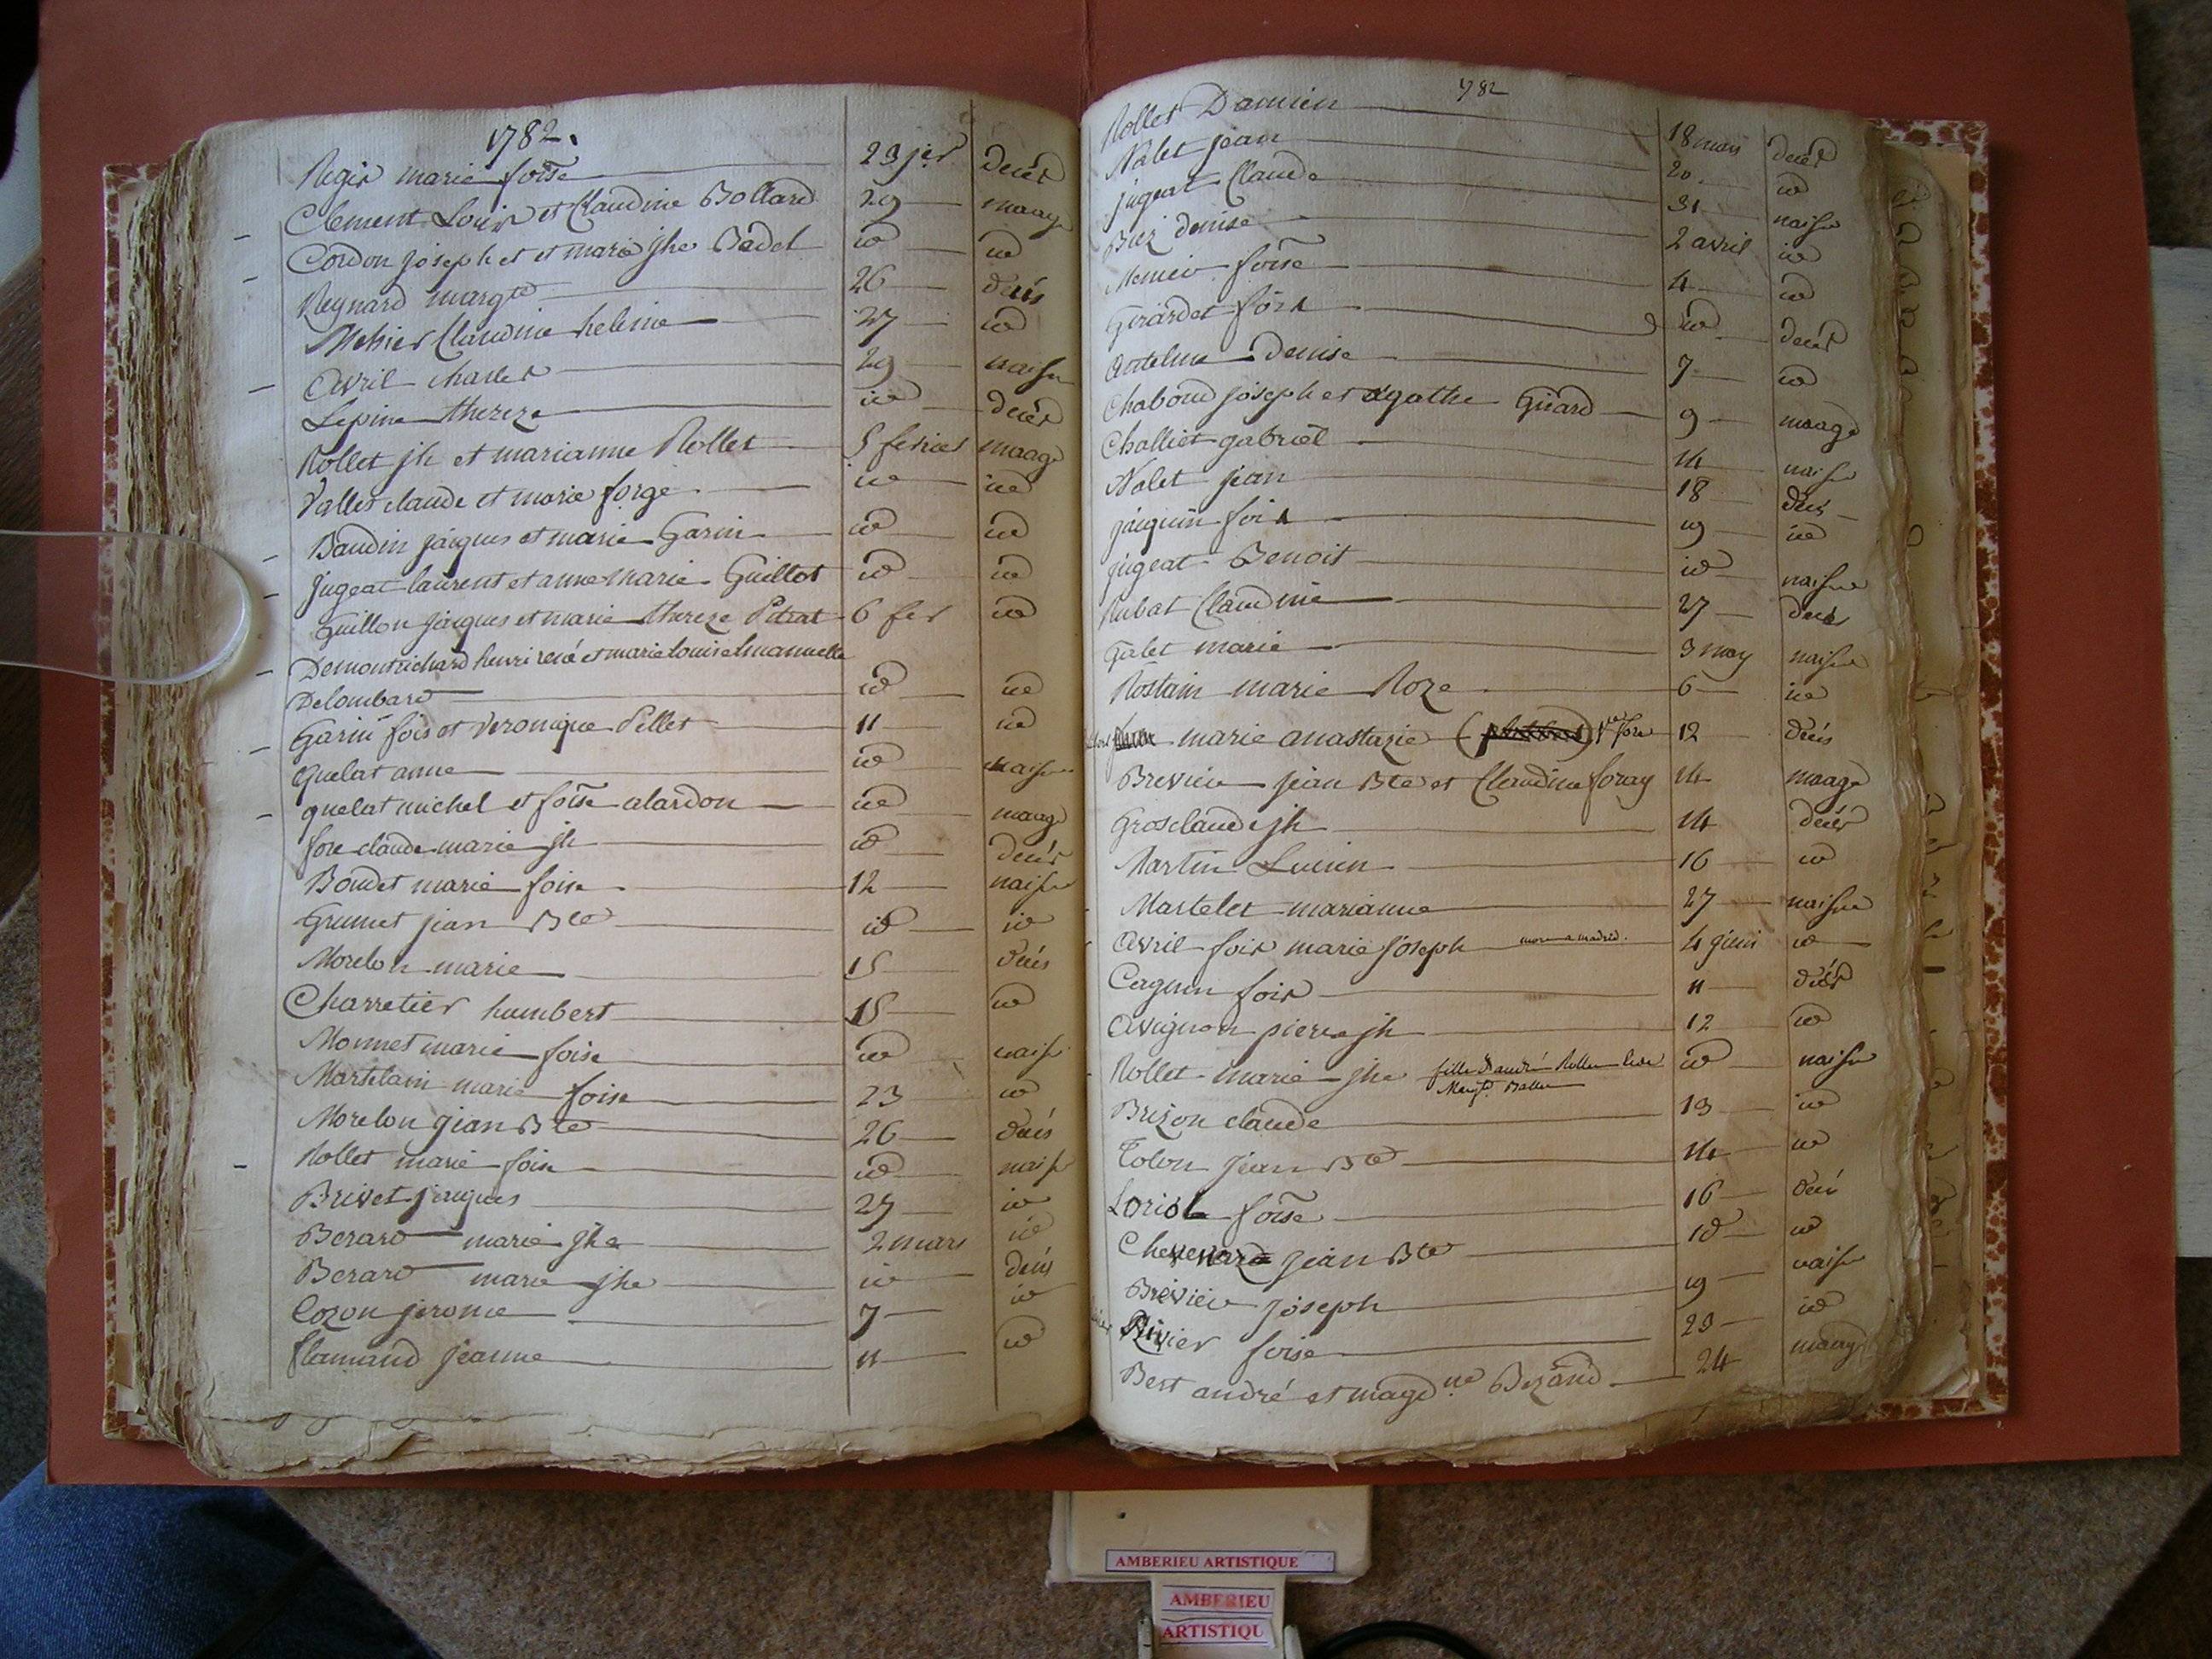 1782.
Regis marie foise 23 jer decés
Clement Louis et Claudine Bollard 29 maage
Cordon joseph et et marie jhe Bedel id id
Reynard margte 26 decés
Mehier Claudine helene 27 id
Avril charles 29 naisse
Lepine thereze id decés
Rollet jh et marianne Rollet 5 fevrier maage
Valles claude et marie forge id id
Baudin jaques et marie Garin id id
jugeat laurent et anne marie Guillot id id
Guillon jaques et marie thereze Pitrat 6 fer id
Demontrichard henri rené et marie louise Emanuelle
Delombard id id
Garin fois et Veronique Pillet 11 id
Quelat anne id naisse
quelat michel et foise alardon id maage
fore claude marie jh id decés
Boudet marie foise 12 naisse
Grumet jean Bte id id
Morelon marie 15 decés
Charretier humbert 15 id
Monnet marie foise id naisse
Martelain marie foise 23 id
Morelon jean Bte 26 decés
Rollet marie foise id naisse
Brivet jaques 27 id
Berard marie jhe 2 mars id
Berard marie jhe id decés
Cozon jerome 7 id
flamand jeanne 11 id
1782
Rollet Damien 18 mars decés
Nalet jean 20 id
jugeat Claude 31 naisse
Biez denise 2 avril id
foise 4 id
Girardet fois id decés
Antelme Denise 7 id
Chaboud joseph et agathe Girard 9 maage
Challiet gabriel 14 naisse
Nalet jean 18 decés
jaiguin fois 19 id
jugeat Benoit id naisse
Rubat Claudine 27 decés
Galet marie 3 may naisse
Rostain marie Roze 6 id
marie anastazie 12 decés
Brevieu jean Bte et Claudine foray 14 maage
Grosclaude jh 14 decés
Martin Lucien 16 id
Martelet marianne 27 naisse
Avril fois marie joseph mort a madrid. 4 juin id
Caguin fois 11 decés
Avignon pierre jh 12 id
Rollet marie jhe fille d'andré Rollet id naisse
Margte
Brizon claude 13 id
Tolon jean Bte 14 id
Loriol foise 16 decés
Chevenard jean Bte id id
Brevieu joseph 19 naisse
Rivier foise 23 id
Best andré et magdne Bezand 24 maage
AMBERIEU ARTISTIQUE
AMBERIEU
ARTISTIQU